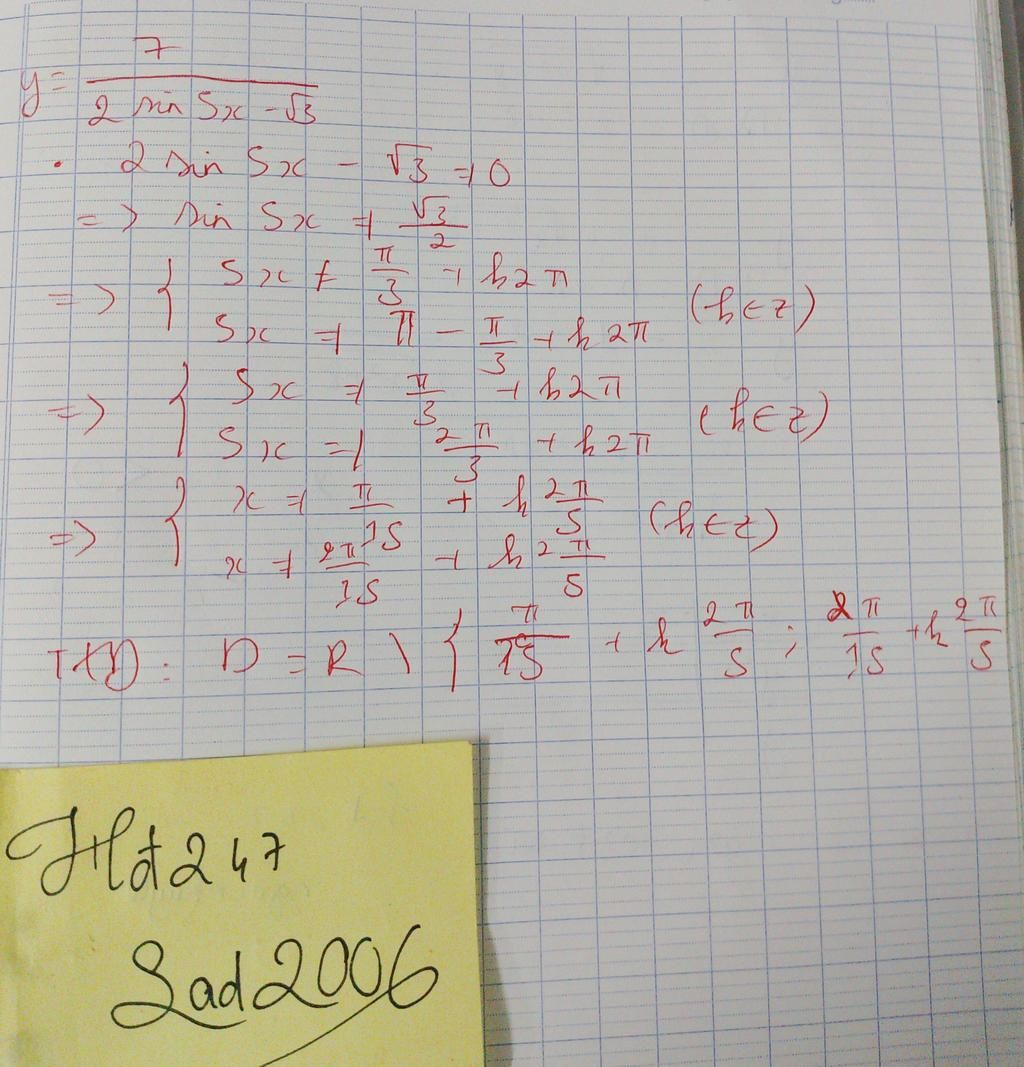 y = 7 / (2 sin 5x - √3)
• 2 sin 5x - √3 ≠ 0
=> sin 5x ≠ √3/2
=> { 5x ≠ π/3 + k2π
5x ≠ π - π/3 + k2π (k ∈ z)
=> { 5x ≠ π/3 + k2π
5x ≠ 2π/3 + k2π (k ∈ z)
=> { x ≠ π/15 + k 2π/5
x ≠ 2π/15 + k 2π/5 (k ∈ z)
TXĐ : D = R \ { π/15 + k 2π/5 ; 2π/15 + k 2π/5
Hđ247
Sad2006